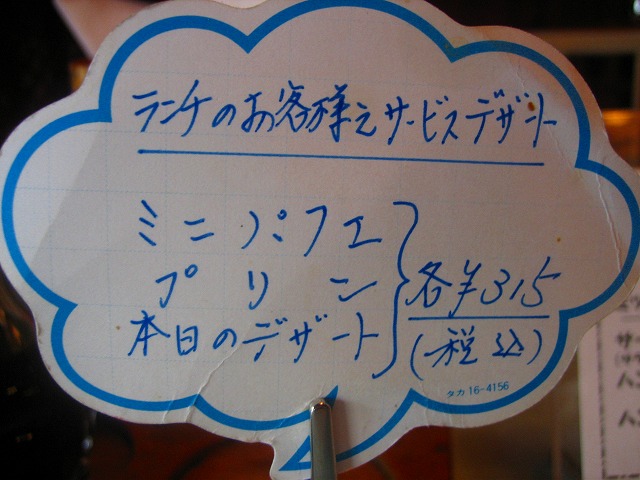 ランチのお客様えサービスデザート
ミニパフェ
プリン
本日のデザート
各¥315
(税込)
タカ 16-4156
サ
ハ
ハ